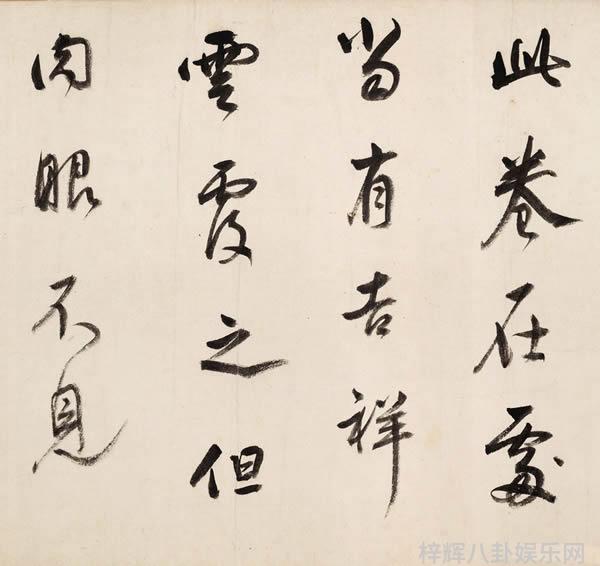 此卷在處
当有吉祥
雲覆之但
肉眼不見
梓辉八卦娱乐网